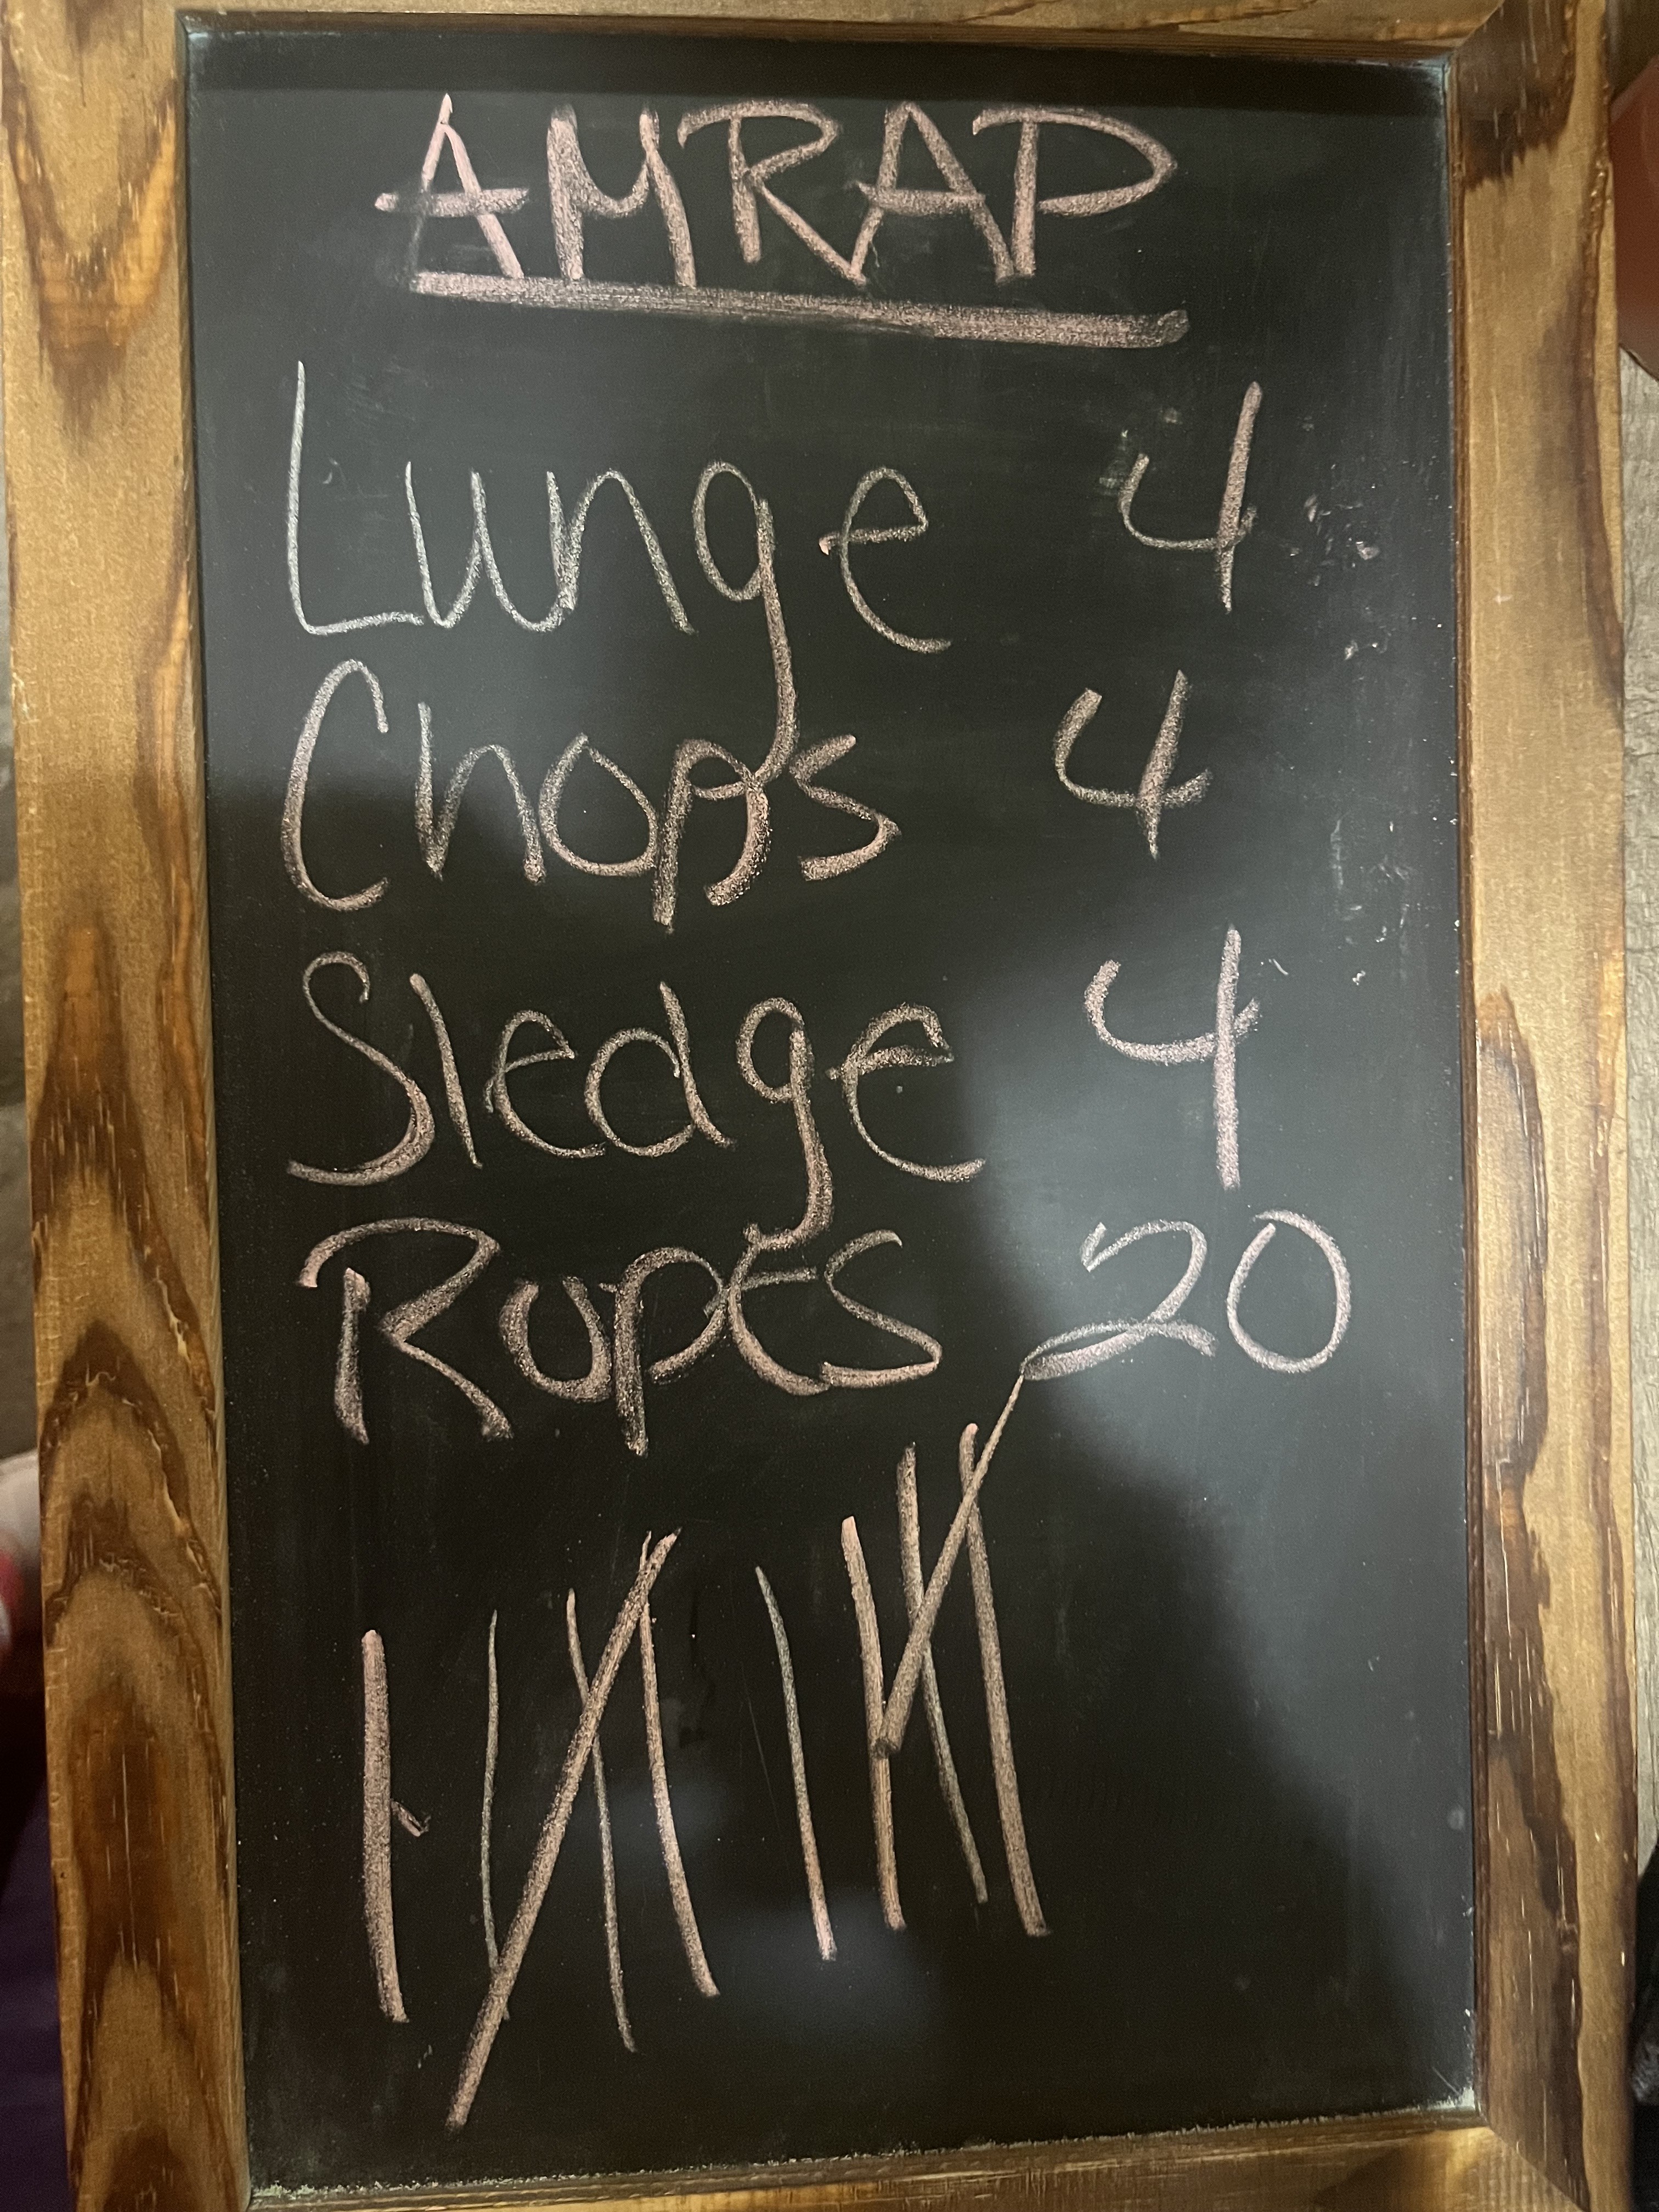 AMRAP
Lunge 4
Chops 4
Sledge 4
Ropes 20